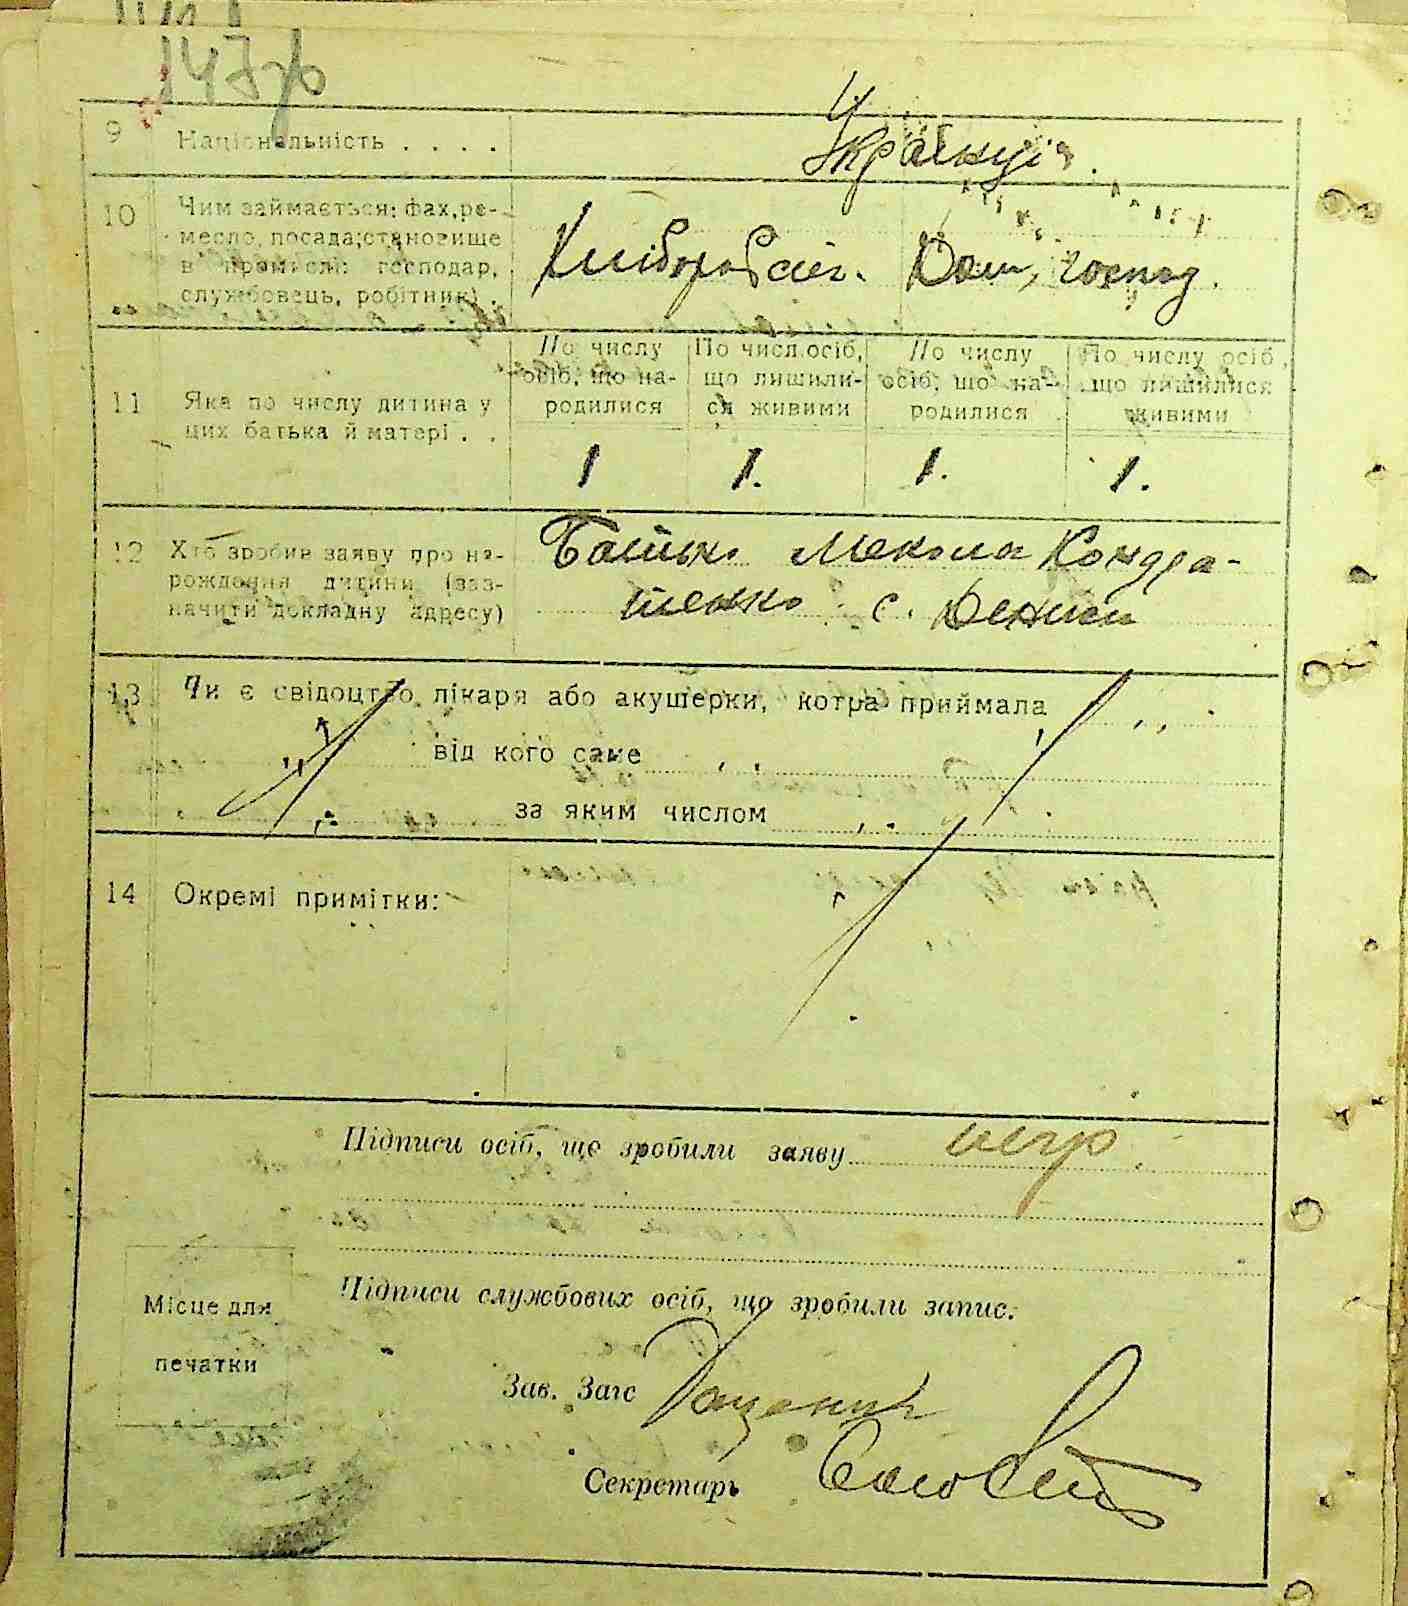 147зв
9 Національність . . . . Українці.
10 Чим займається: фах, ре-
месло, посада; становище
в промислі: господар,
службовець, робітник) .
Хлібороб сіл. Дом, господ.
11 Яка по числу дитина у
цих батька й матері . .
По числу осіб, що на-родилися
По числ. осіб, що лишили-ся живими
По числу осіб, що на-родилися
По числу осіб, що лишилися живими
1 1. 1. 1.
12 Хто зробив заяву про на-
рождення дитини (заз-
начити докладну адресу)
Батько Микола Кондра-
тенко с. Дениси
13 Чи є свідоцтво лікаря або акушерки, котра приймала
від кого саме
за яким числом
14 Окремі примітки:
Підписи осіб, що зробили заяву
Місце для
печатки
Підписи службових осіб, що зробили запис:
Зав. Загс
Секретарь